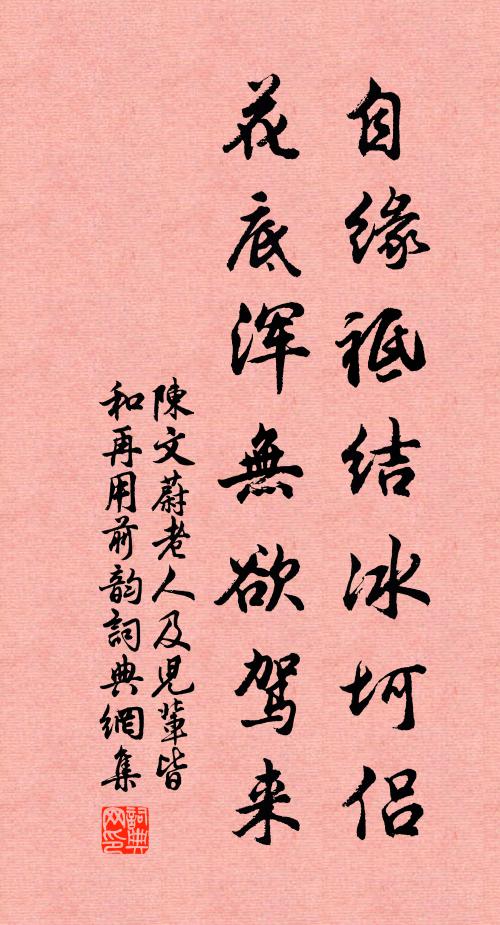 自缘祗结冰坷侣
花底浑無欲驾来
陳文蔚老人及児輩皆
和再用前韵詞典網集
詞典
网印